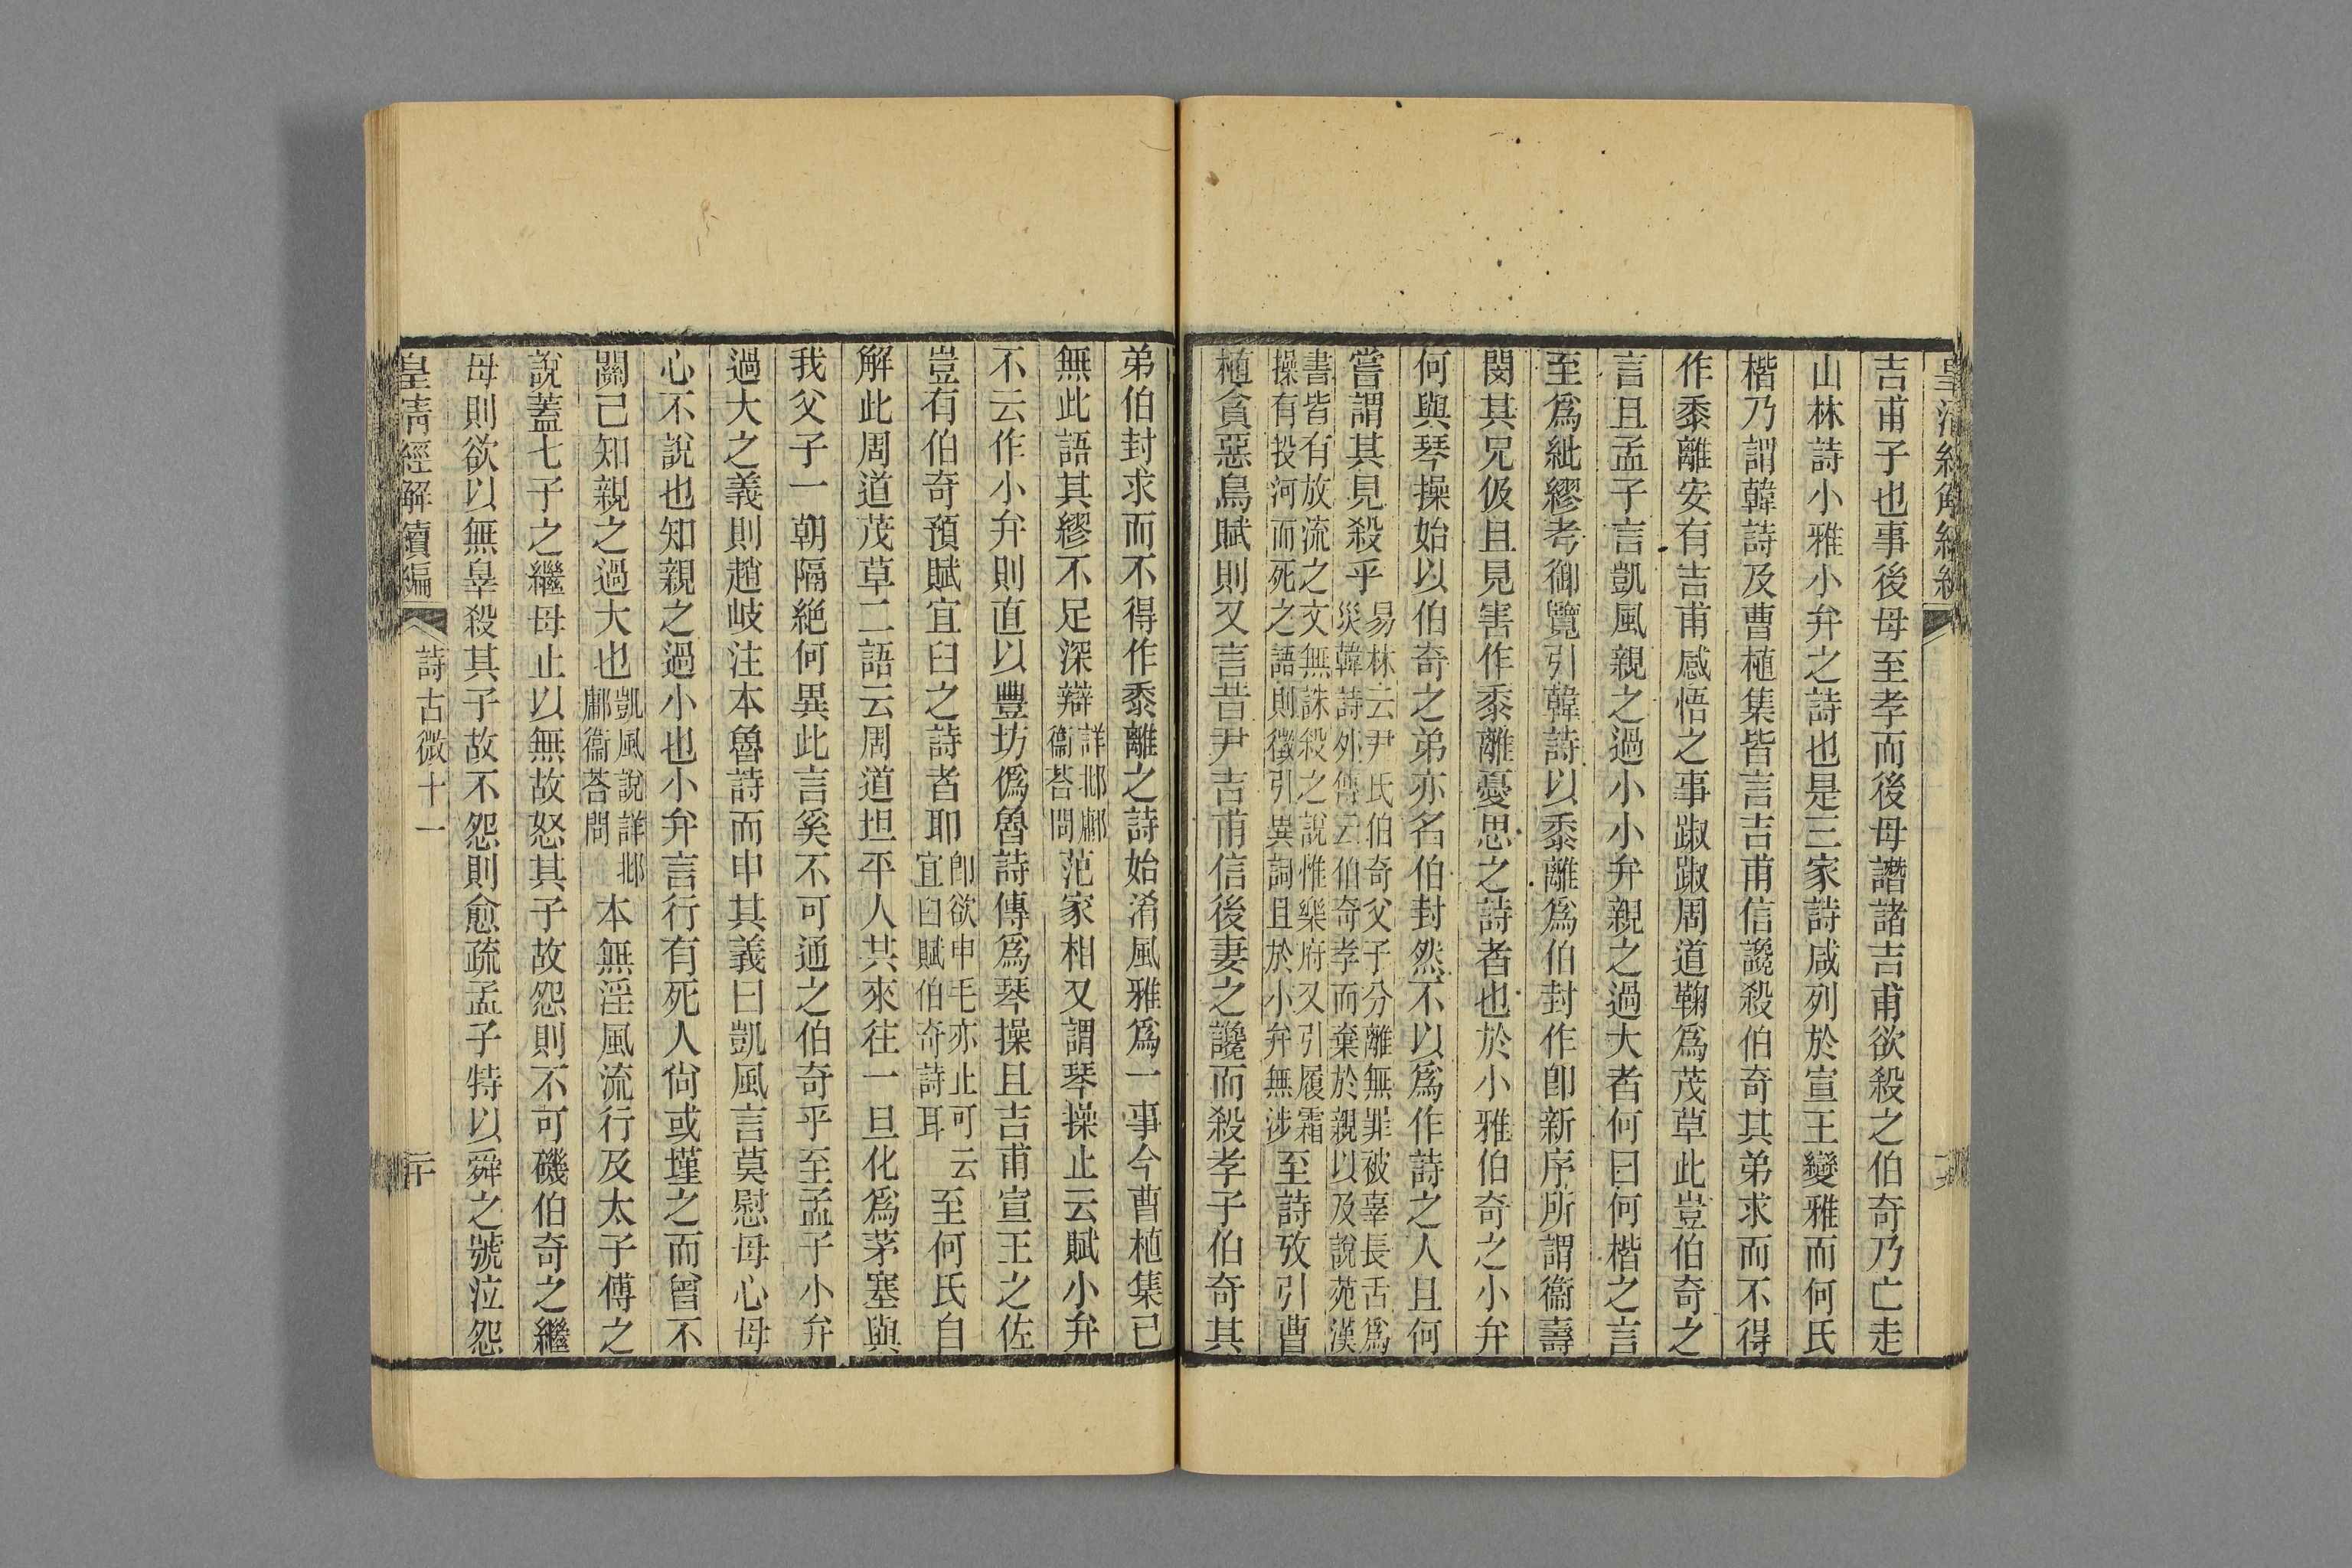 吉甫子也事後母至孝而後母譖諸吉甫欲殺之伯奇乃亡走
山林詩小雅小弁之詩也是三家詩咸列於宣王變雅而何氏
楷乃謂韓詩及曹植集皆言吉甫信讒殺伯奇其弟求而不得
作黍離安有吉甫感悟之事踧踧周道鞠爲茂草此豈伯奇之
言且孟子言凱風親之過小小弁親之過大者何曰何楷之言
至爲紕繆考御覽引韓詩以黍離爲伯封作卽新序所謂衞壽
閔其兄伋且見害作黍離憂思之詩者也於小雅伯奇之小弁
何與琴操始以伯奇之弟亦名伯封然不以爲作詩之人且何
嘗謂其見殺乎
易林云尹氏伯奇父子分離無罪被辜長舌爲
災韓詩外傳云伯奇孝而棄於親以及說苑漢
書皆有放流之文無誅殺之說惟樂府又引履霜
操有投河而死之語則徵引異詞且於小弁無涉
至詩攷引曹
植貪惡鳥賦則又言昔尹吉甫信後妻之讒而殺孝子伯奇其
弟伯封求而不得作黍離之詩始淆風雅爲一事今曹植集已
無此語其繆不足深辯
詳邶鄘
衞荅問
范家相又謂琴操止云賦小弁
不云作小弁則直以豐坊僞魯詩傳爲琴操且吉甫宣王之佐
豈有伯奇預賦宜臼之詩者耶
卽欲申毛亦止可云
宜臼賦伯奇詩耳
至何氏自
解此周道茂草二語云周道坦平人共來往一旦化爲茅塞與
我父子一朝隔絶何異此言奚不可通之伯奇乎至孟子小弁
過大之義則趙岐注本魯詩而申其義曰凱風言莫慰母心母
心不說也知親之過小也小弁言行有死人尙或墐之而曾不
關己知親之過大也
凱風說詳邶
鄘衞荅問
本無淫風流行及太子傅之
說蓋七子之繼母止以無故怒其子故怨則不可磯伯奇之繼
母則欲以無辠殺其子故不怨則愈疏孟子特以舜之號泣怨
皇清經解續編
詩古微十一
二十